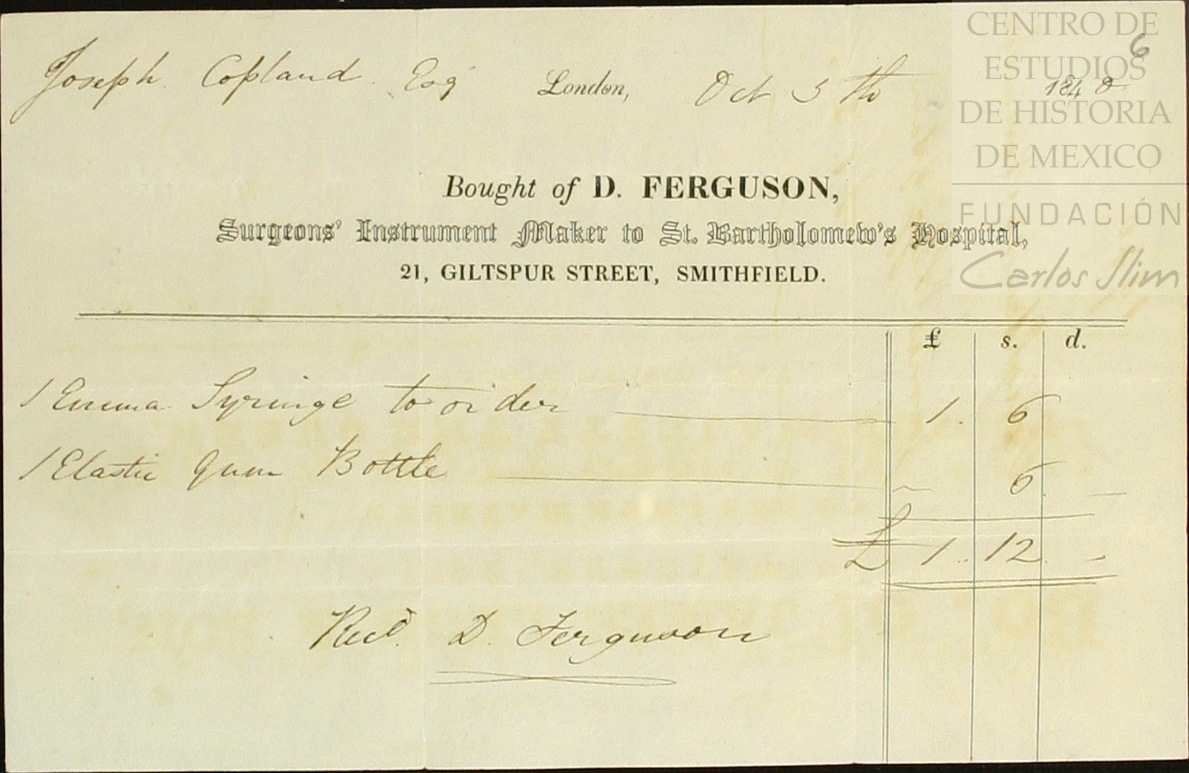 CENTRO DE
ESTUDIOS
DE HISTORIA
DE MEXICO
FUNDACIÓN
Carlos Slim
6
Joseph Copland Esq London, Oct 5th 1840
Bought of D. FERGUSON,
Surgeons' Instrument Maker to St. Bartholomew's Hospital,
21, GILTSPUR STREET, SMITHFIELD.
£ s. d.
1 Enema Syringe to order 1. 6
1 Elastic Gum Bottle 6. -
£ 1.. 12. -
Recd. D. Ferguson